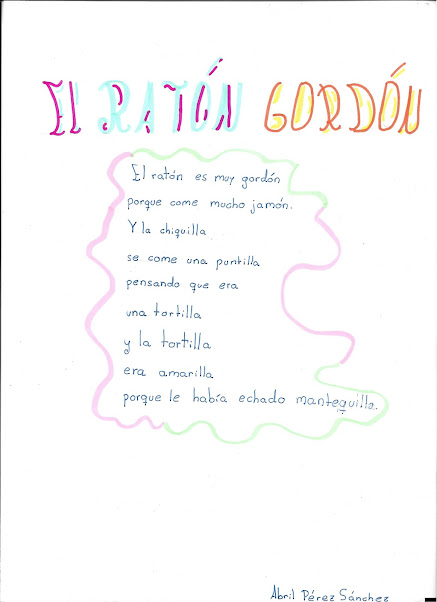 EL RATÓN GORDÓN
El ratón es muy gordón
porque come mucho jamón.
Y la chiquilla
se come una puntilla
pensando que era
una tortilla
y la tortilla
era amarilla
porque le había echado mantequilla.
Abril Pérez Sánchez